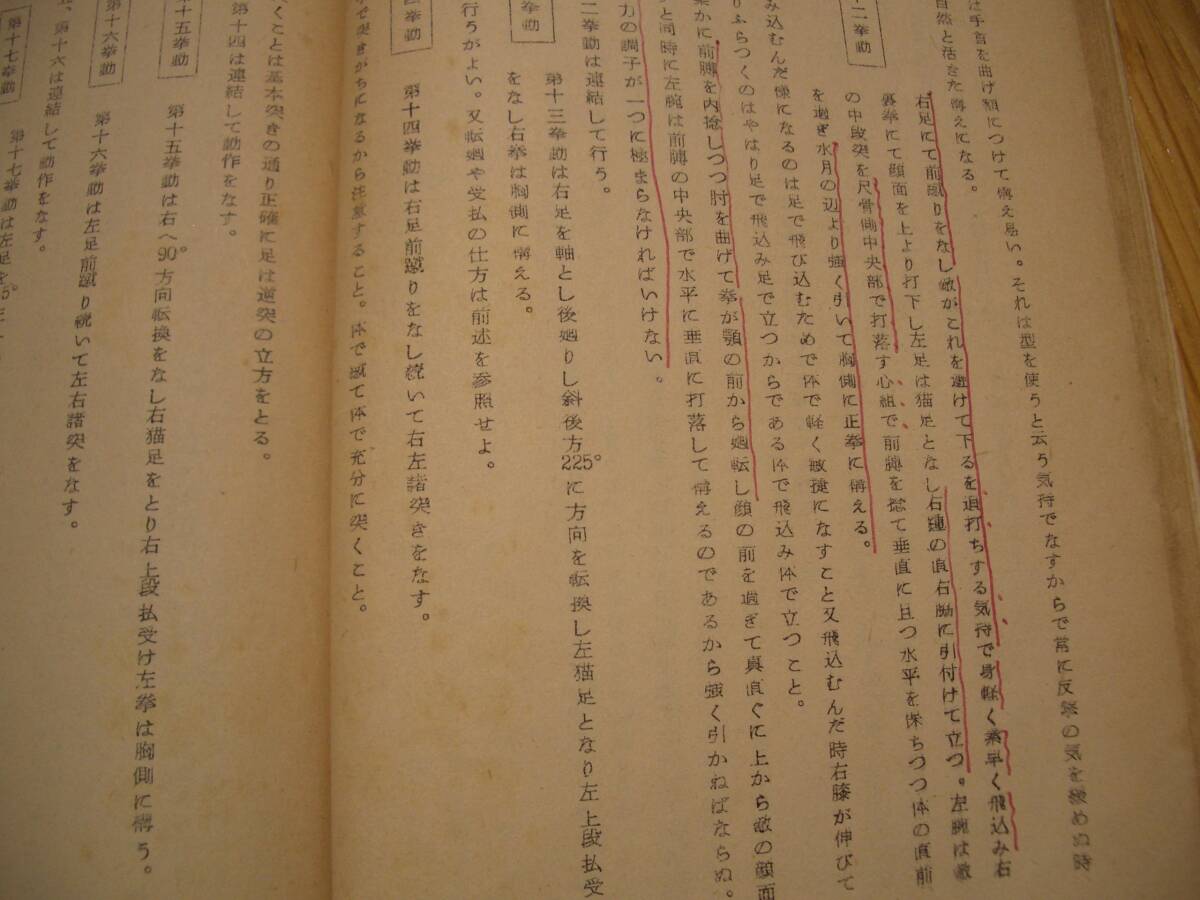 手首を曲げ額につけて構え易い。それは型を使うと云う気持でなすからで常に反撃の気を緩めぬ時
自然と活きた構えになる。
二挙動
右足にて前蹴りをなし敵がこれを避けて下るを追打ちする気持で身軽く素早く飛込み右
裏拳にて顔面を上より打下し左足は猫足となし右踵の直右脇に引付けて立つ。左腕は敵
の中段突を尺骨側中央部で打落す心組で前膊を捻て垂直に且つ水平を保ちつつ体の直前
を過ぎ水月の辺より強く引いて胸側に正拳に構える。
み込むんだ様になるのは足で飛び込むためで体で軽く敏捷になすこと又飛込むんだ時右膝が伸びて
りふらつくのはやはり足で飛込み足で立つからである体で飛込み体で立つこと。
かに前膊を内捻しつつ肘を曲げて拳が顎の前から廻転し顔の前を過ぎて真直ぐに上から敵の顔面
と同時に左腕は前膊の中央部で水平に垂直に打落して構えるのであるから強く引かねばならぬ。
力の調子が一つに極まらなければいけない。
二挙動は連結して行う。
挙動
第十三挙動は右足を軸とし後廻りし斜後方225°に方向を転換し左猫足となり左上段払受
をなし右拳は胸側に構える。
行うがよい。又転廻や受払の仕方は前述を参照せよ。
四挙動
第十四挙動は右足前蹴りをなし続いて右左諸突きをなす。
で突きがちになるから注意すること。体で蹴て体で充分に突くこと。
くことは基本突きの通り正確に足は逆突の立方をとる。
第十四は連結して動作をなす。
十五挙動
第十五挙動は右へ90°方向転換をなし右猫足をとり右上段払受け左拳は胸側に構う。
第十六挙動
第十六挙動は左足前蹴り続いて左右諸突をなす。
、第十六は連結して動作をなす。
第十七挙動
第十七挙動は左足を